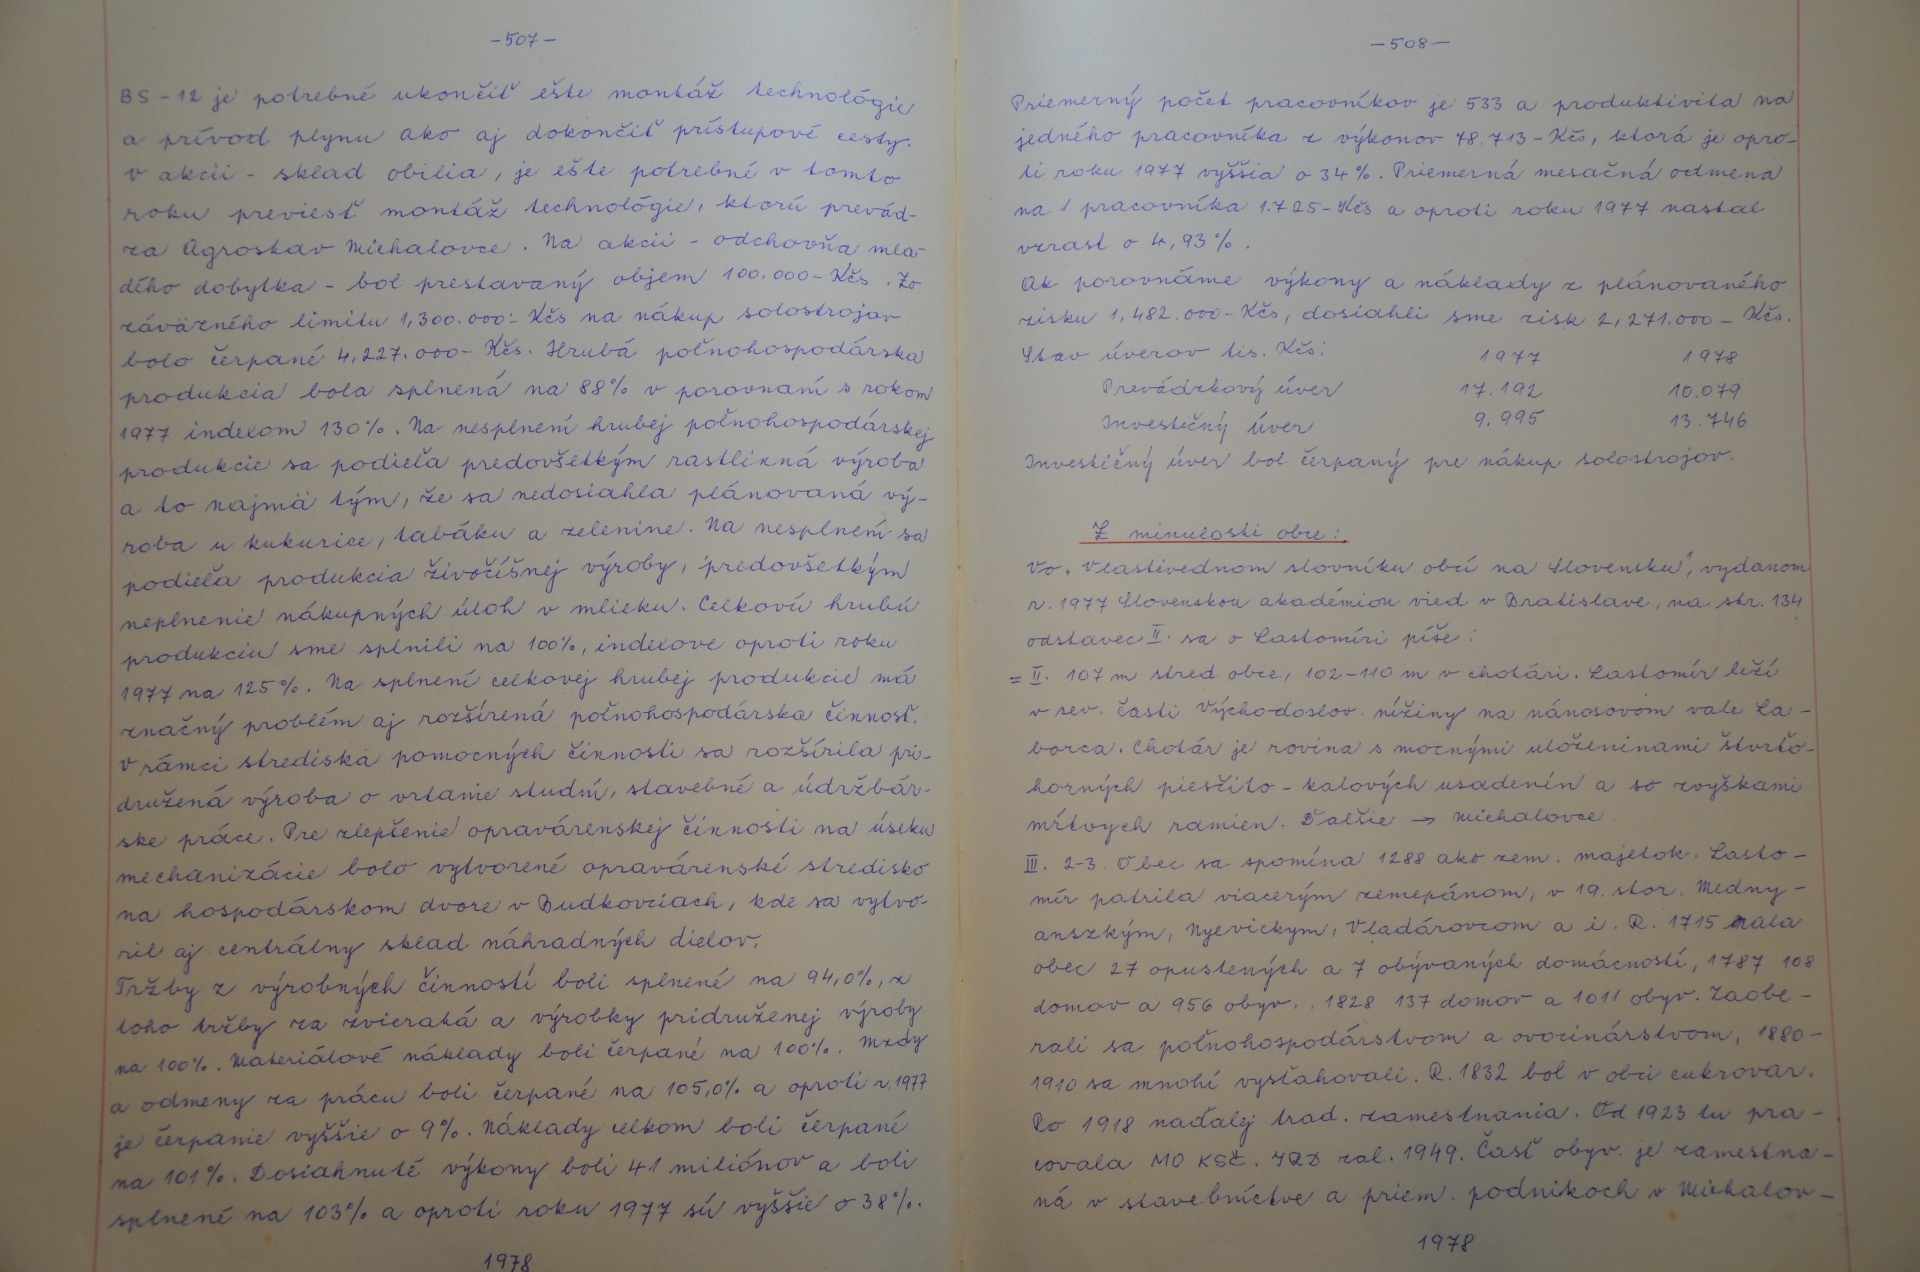 -507-
BS-12 je potrebné ukončiť ešte montáž technológie
a prívod plynu ako aj dokončiť prístupové cesty.
v akcii - sklad obilia, je ešte potrebné v tomto
roku previesť montáž technológie, ktorú prevád-
za Agrostav Michalovce. Na akcii - odchovňa mla-
dého dobytka - bol prestavaný objem 100.000- Kčs. Zo
záväzného limitu 1,300.000.- Kčs na nákup solostrojov
bolo čerpané 4,227.000- Kčs. Hrubá poľnohospodárska
produkcia bola splnená na 88% v porovnaní s rokom
1977 indexom 130%. Na nesplnení hrubej poľnohospodárskej
produkcie sa podieľa predovšetkým rastlinná výroba
a to najmä tým, že sa nedosiahla plánovaná vý-
roba u kukurice, tabáku a zelenine. Na nesplnení sa
podieľa produkcia živočíšnej výroby, predovšetkým
neplnenie nákupných úloh v mlieku. Celkovú hrubú
produkciu sme splnili na 100%, indexove oproti roku
1977 na 125%. Na splnení celkovej hrubej produkcie má
značný problém aj rozšírená poľnohospodárska činnosť.
V rámci strediska pomocných činnosti sa rozšírila pri-
družená výroba o vrtanie studní, stavebné a údržbár-
ske práce. Pre zlepšenie opravárenskej činnosti na úseku
mechanizácie bolo vytvorené opravárenské stredisko
na hospodárskom dvore v Budkovciach, kde sa vytvo-
ril aj centrálny sklad náhradných dielov.
Tržby z výrobných činností boli splnené na 94,0%, z
toho tržby za zvieratá a výrobky pridruženej výroby
na 100%. Materiálové náklady boli čerpané na 100%. Mzdy
a odmeny za prácu boli čerpané na 105,0% a oproti r. 1977
je čerpanie vyššie o 9%. Náklady celkom boli čerpané
na 101%. Dosiahnuté výkony boli 41 miliónov a boli
splnené na 103% a oproti roku 1977 sú vyššie o 38%.
1978
-508-
Priemerný počet pracovníkov je 533 a produktivita na
jedného pracovníka z výkonov 78.713- Kčs, ktorá je opro-
ti roku 1977 vyššia o 34%. Priemerná mesačná odmena
na 1 pracovníka 1.725- Kčs a oproti roku 1977 nastal
vzrast o 4,93%.
Ak porovnáme výkony a náklady z plánovaného
zisku 1,482.000- Kčs, dosiahli sme zisk 2,271.000- Kčs.
Stav úverov tis. Kčs: 1977 1978
Prevádzkový úver 17.192 10.079
Investičný úver 9.995 13.746
Investičný úver bol čerpaný pre nákup solostrojov.
Z minulosti obce:
Vo „Vlastivednom slovníku obcí na Slovensku", vydanom
r. 1977 Slovenskou akadémiou vied v Bratislave, na str. 134
odstavec II. sa o Lastomíri píše:
= II. 107 m stred obce, 102-110 m v chotári. Lastomír leží
v sev. časti Východoslov. nížiny na nánosovom vale La-
borca. Chotár je rovina s mocnými uloženinami štvrťo-
horných piesčito - kalových usadenín a so zvyškami
mŕtvych ramien. Ďalšie → Michalovce.
III. 2-3. Obec sa spomína 1288 ako zem. majetok. Lasto-
mír patrila viacerým zemepánom, v 19. stor. Medny-
anszkým, Nyevickym, Vladárovcom a i. R. 1715 mala
obec 27 opustených a 7 obývaných domácností, 1787 108
domov a 956 obyv., 1828 137 domov a 1011 obyv. Zaobe-
rali sa poľnohospodárstvom a ovocinárstvom, 1880-
1910 sa mnohí vysťahovali. R. 1832 bol v obci cukrovar.
Po 1918 naďalej trad. zamestnania. Od 1923 tu pra-
covala MO KSČ. JRD zal. 1949. Časť obyv. je zamestna-
ná v stavebníctve a priem. podnikoch v Michalov-
1978